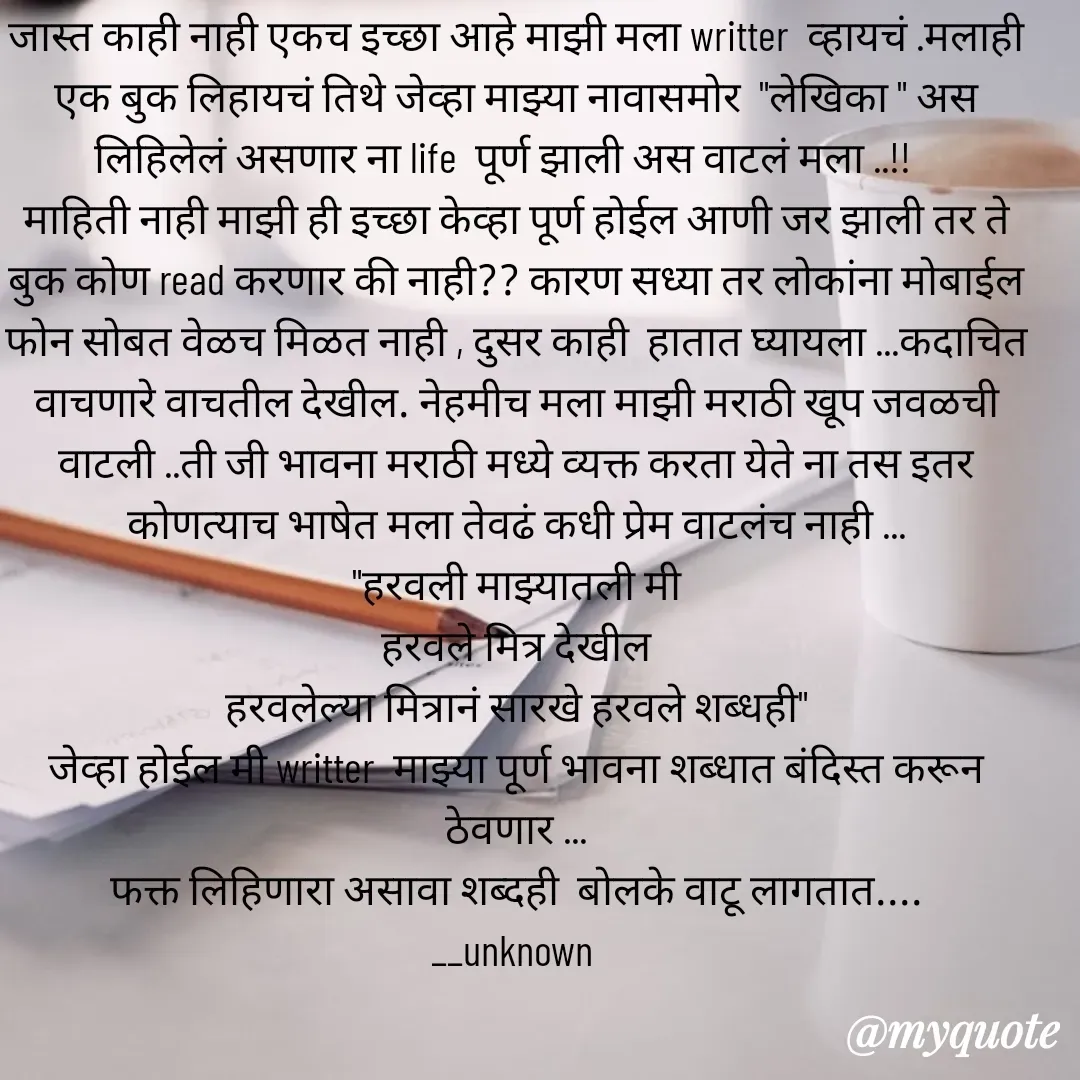 जास्त काही नाही एकच इच्छा आहे माझी मला writter व्हायचं .मलाही
एक बुक लिहायचं तिथे जेव्हा माझ्या नावासमोर "लेखिका " अस
लिहिलेलं असणार ना life पूर्ण झाली अस वाटलं मला ..!!
माहिती नाही माझी ही इच्छा केव्हा पूर्ण होईल आणी जर झाली तर ते
बुक कोण read करणार की नाही?? कारण सध्या तर लोकांना मोबाईल
फोन सोबत वेळच मिळत नाही , दुसर काही हातात घ्यायला ...कदाचित
वाचणारे वाचतील देखील. नेहमीच मला माझी मराठी खूप जवळची
वाटली ..ती जी भावना मराठी मध्ये व्यक्त करता येते ना तस इतर
कोणत्याच भाषेत मला तेवढं कधी प्रेम वाटलंच नाही ...
"हरवली माझ्यातली मी
हरवले मित्र देखील
हरवलेल्या मित्रानं सारखे हरवले शब्धही"
जेव्हा होईल मी writter माझ्या पूर्ण भावना शब्धात बंदिस्त करून
ठेवणार ...
फक्त लिहिणारा असावा शब्दही बोलके वाटू लागतात....
__unknown
@myquote